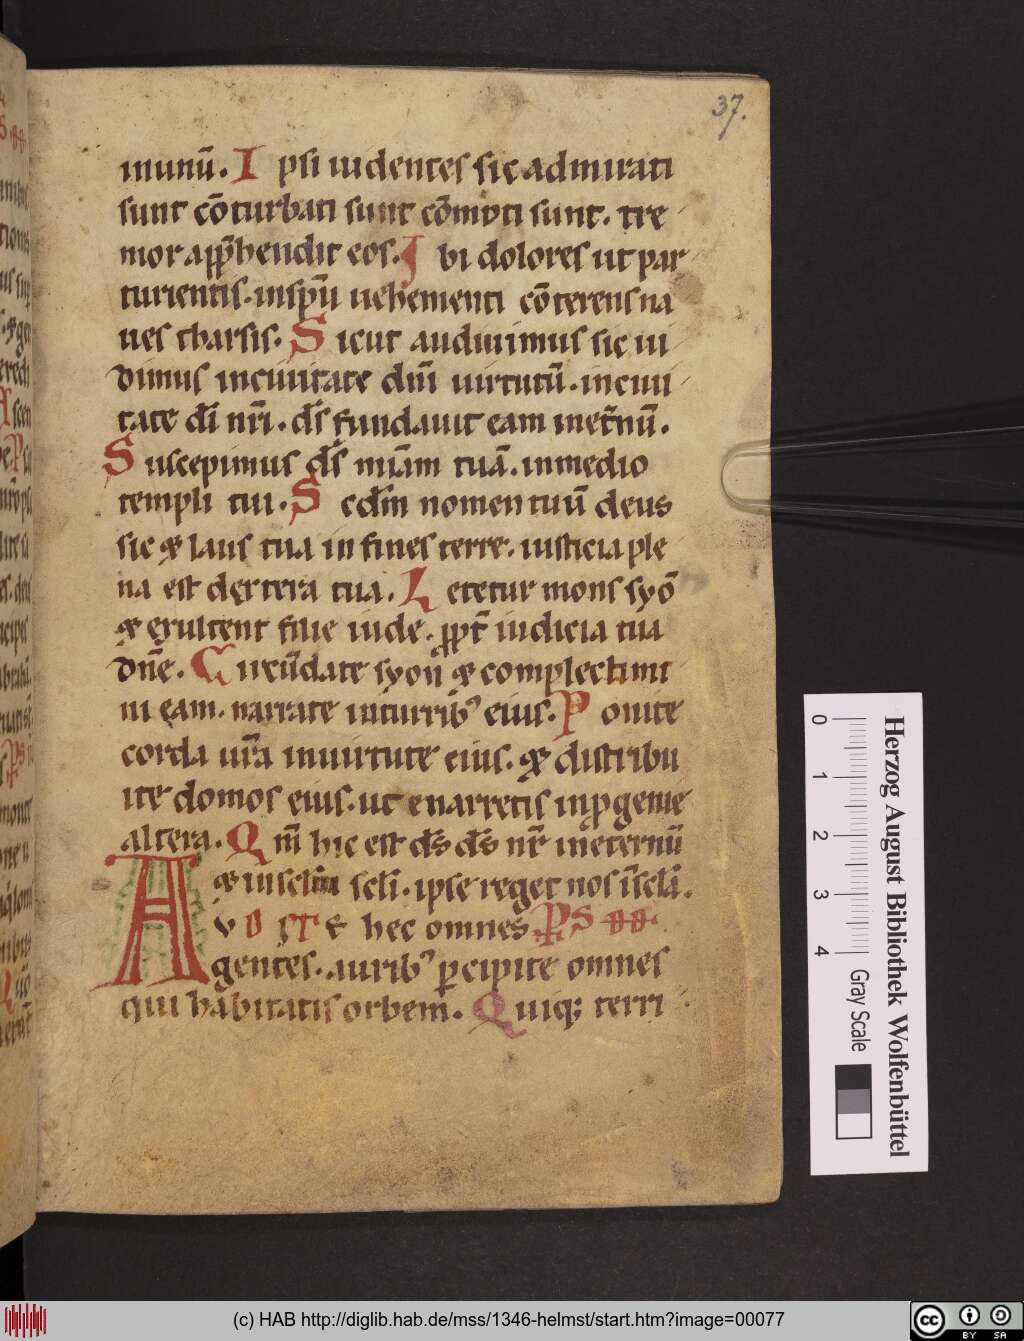 37.
inunū. I psi uidentes sic admirati
sunt cōturbati sunt cōmoti sunt. tre
mor app̄hendit eos. I bi dolores ut par
turientis. inspū uehementi cōterens na
ues tharsis. S icut audiuimus sic ui
dimus inciuitate dn̄i uirtutū. inciui
tate dī nr̄i. ds̄ fundauit eam inet̄nū.
S uscepimus ds̄ mīam tuā. inmedio
templi tui. S cdm̄ nomen tuū deus
sic & laus tua in fines terre. iusticia ple
na est dextera tua. L etetur mons syō
& exultent filie iude. ppt̄ iudicia tua
dn̄e. C ircūdate syon & complectimi
ni eam. narrate inturrib' eius. P onite
corda ur̄a inuirtute eius. & distribu
ite domos eius. ut enarretis inpgenie
altera. Q m̄ hic est ds̄ ds̄ nr̄ ineternū
& inseculū sclī. ipse reget nos īsclā.
A V D IT E hec omnes PS DD.
gentes. aurib' pcipite omnes
qui habitatis orbem. Q uiq; terri
Herzog August Bibliothek Wolfenbüttel
0 1 2 3 4 Gray Scale
(c) HAB http://diglib.hab.de/mss/1346-helmst/start.htm?image=00077
cc BY SA